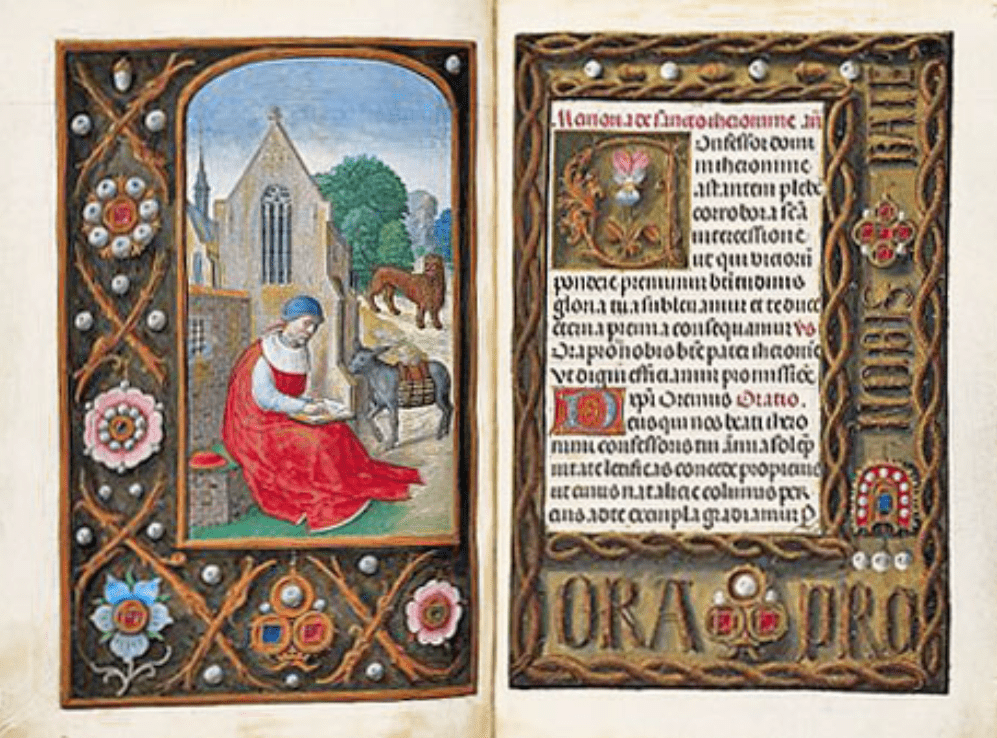 Memoria de sancto iheronimo an̄
Confessor domi
ni iheronime
astantem plebē
corrobora scā
intercessione
ut qui vicioru
pondere premimur beitudinis
gloria tua subleuamur et te duce
eterna premia consequamur vs
Ora pro nobis bte pater iheronie
vt digni efficiamur promissiōe
xpi Oremus Oratio.
Deus qui nos beati ihero
nimi confessoris tui ānua solēp
nitate letificas concede propicius
ut cuius natalicia colimus per
eius ad te exempla gradiamur P
ORA PRO
NOBIS